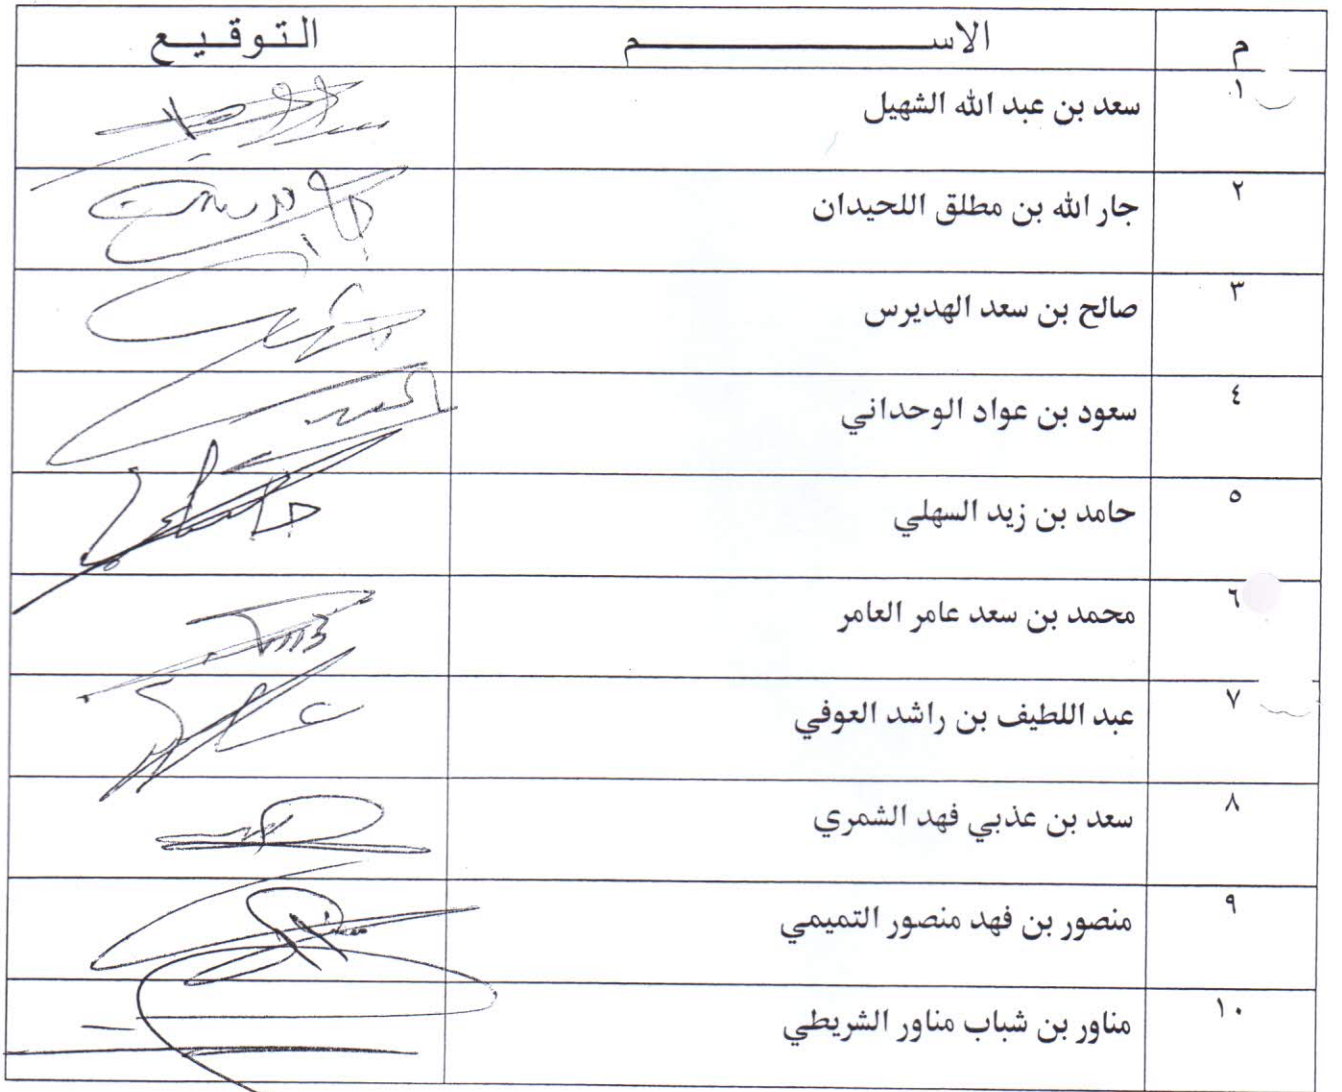 م الاســـــــــــم التوقيع
١ سعد بن عبد الله الشهيل
٢ جار الله بن مطلق اللحيدان
٣ صالح بن سعد الهديرس
٤ سعود بن عواد الوحداني
٥ حامد بن زيد السهلي
٦ محمد بن سعد عامر العامر
٧ عبد اللطيف بن راشد العوفي
٨ سعد بن عذبي فهد الشمري
٩ منصور بن فهد منصور التميمي
١٠ مناور بن شباب مناور الشريطي